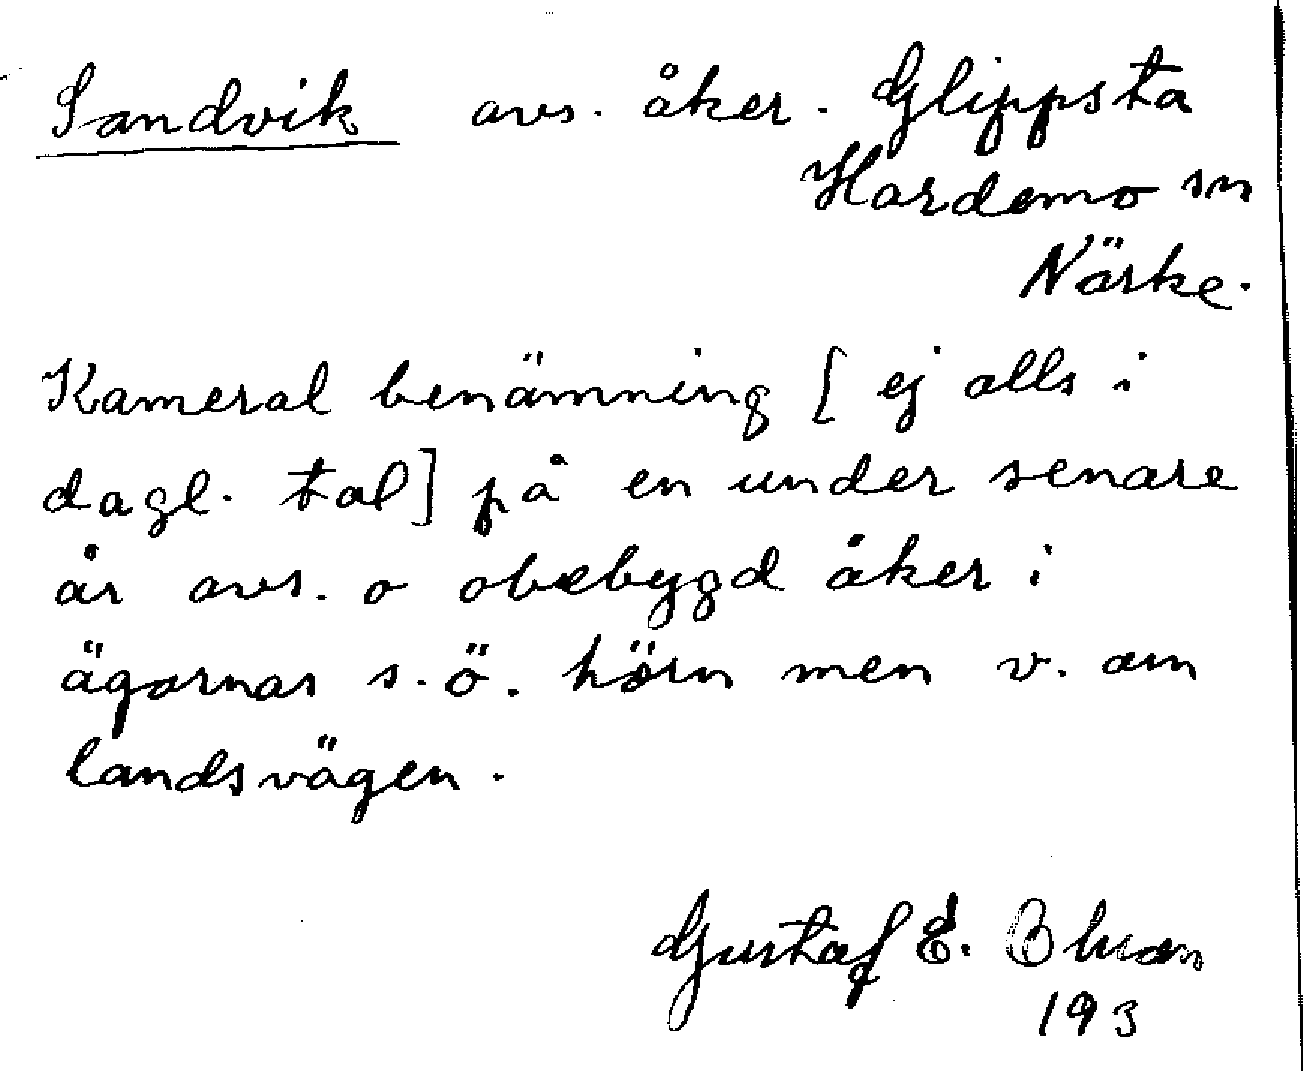 Sandvik avs. åker. Glippsta
Hardemo sn
Närke.
Kameral benämning [ ej alls i
dagl. tal] på en under senare
år avs. o obebygd åker i
ägornas s.ö. hörn men v. om
landsvägen.
Gustaf E.
193